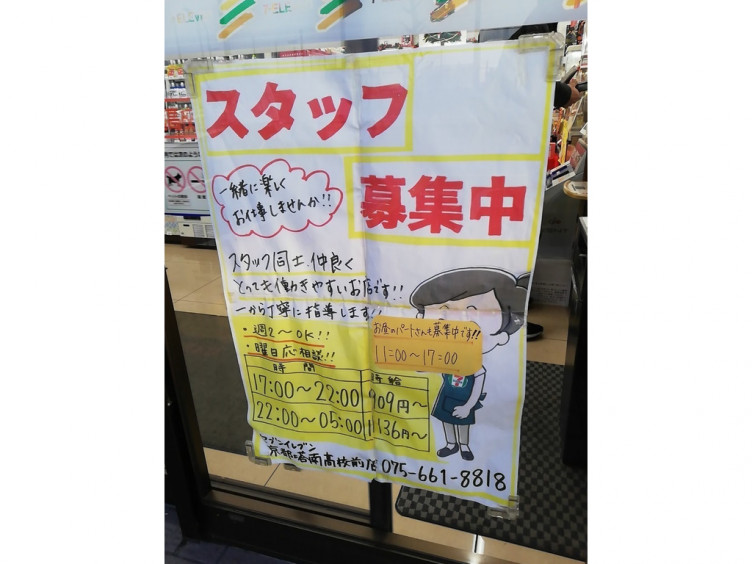 スタッフ
募集中
一緒に楽しく
お仕事しませんか!!
スタッフ同士、仲良く
とっても働きやすいお店です!!
一から丁寧に指導します!!
・週2〜OK!!
・曜日応相談!!
お昼のパートさんも募集中です!!
11:00〜17:00
時間
時給
17:00〜22:00 909円〜
22:00〜05:00 1136円〜
セブンイレブン
京都塔南高校前店 075-661-8818